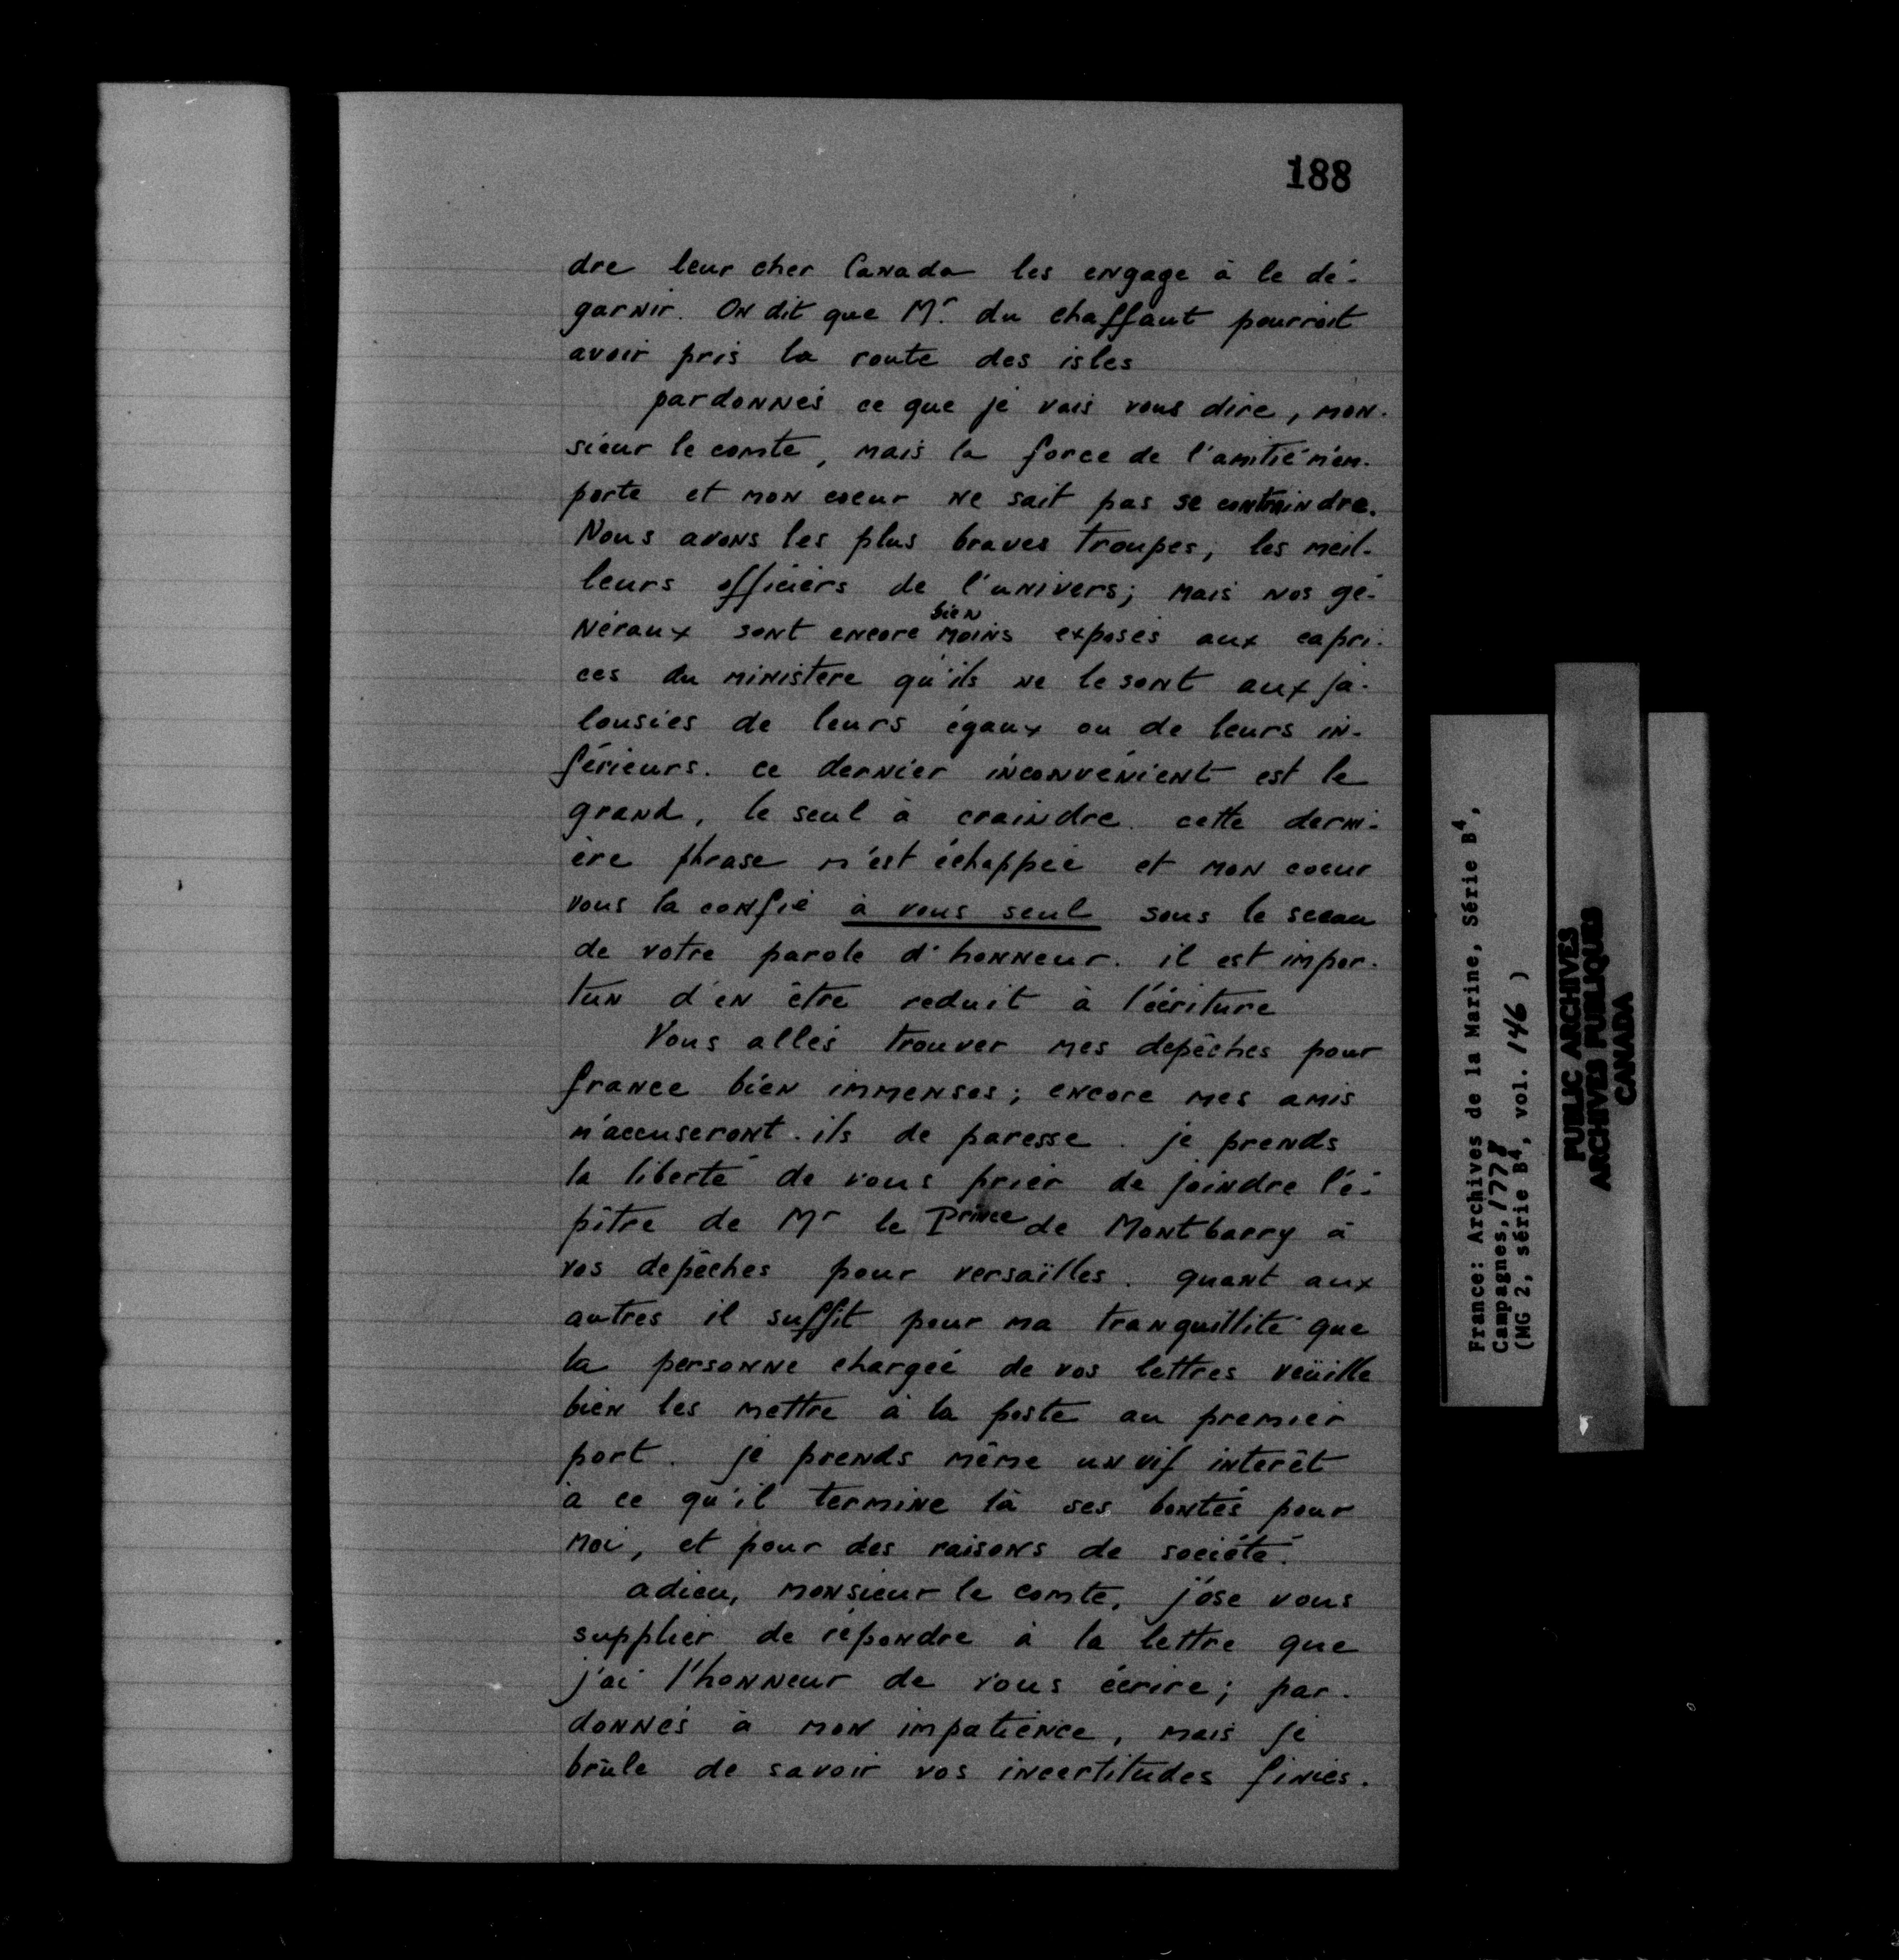 188
dre leur cher Canada les engage à le dé-
garnir. On dit que Mr. du chaffaut pourroit
avoir pris la route des isles
pardonnés ce que je vais vous dire, mon-
sieur le comte, mais la force de l'amitié m'em-
porte et mon coeur ne sait pas se contraindre.
Nous avons les plus braves troupes, les meil-
leurs officiers de l'univers; mais nos gé-
néraux sont encore bien moins exposés aux capri-
ces du ministere qu'ils ne le sont aux ja-
lousies de leurs égaux ou de leurs in-
férieurs. ce dernier inconvénient est le
grand, le seul à craindre. cette derni-
ère phrase m'est échappée et mon coeur
vous la confie à vous seul sous le sceau
de votre parole d'honneur. il est impor-
tun d'en être reduit à l'écriture
Vous allés trouver mes depêches pour
france bien immenses; encore mes amis
m'accuseront-ils de paresse. je prends
la liberté de vous prier de joindre l'é-
pître de Mr le Prince de Montbarry à
vos depêches pour versaïlles. quant aux
autres il suffit pour ma tranquillité que
la personne chargée de vos lettres veüille
bien les mettre à la poste au premier
port. je prends même un vif interêt
à ce qu'il termine là ses bontés pour
moi, et pour des raisons de société.
adieu, monsieur le comte, j'ose vous
supplier de répondre à la lettre que
j'ai l'honneur de vous écrire; par-
donnés à mon impatience, mais je
brûle de savoir vos incertitudes finies.
France: Archives de la Marine, Série B4,
Campagnes, 1778
(MG 2, série B4, vol. 146 )
PUBLIC ARCHIVES
ARCHIVES PUBLIQUES
CANADA